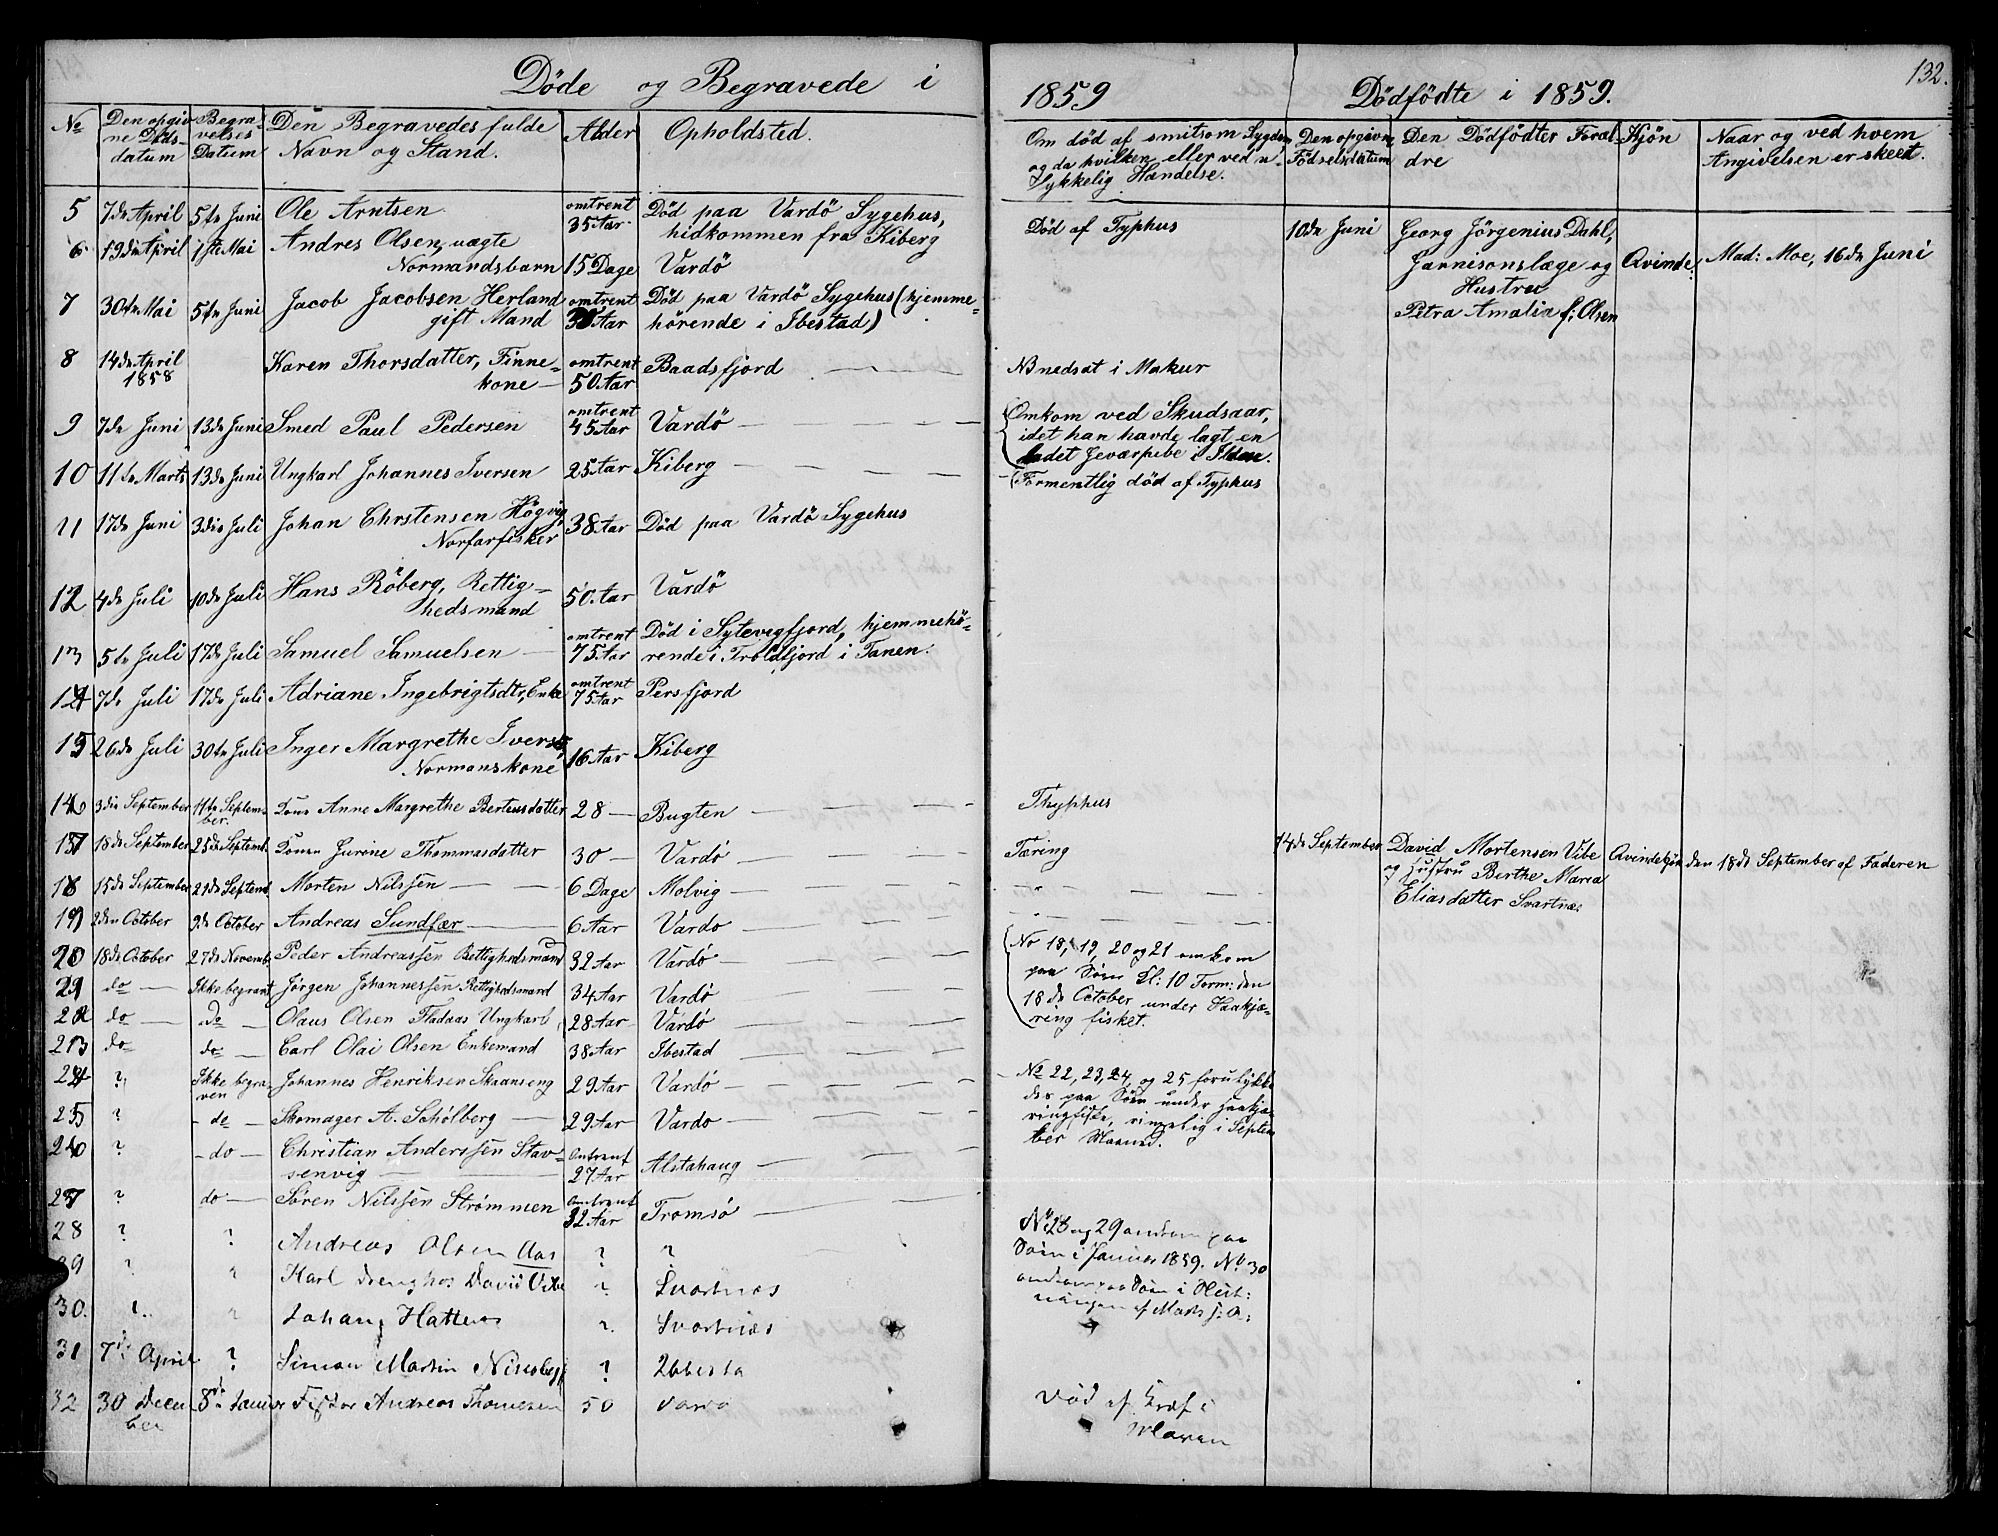 Döde og Begravede i
1859
Dödfödte i 1859.
132.
No
Den opgivne Dödsdatum
Begravelses Datum
Den Begravedes fulde Navn og Stand.
Alder
Opholdsted.
Om död af smitsom Sygdom og da hvilken, eller ved ulykkelig Hændelse.
Den opgivne Födselsdatum
Den Dödfödtes Forældre
Kjön
Naar og ved hvem Angivelsen er skeet.
5 7de April 5te Juni Ole Arntsen omtrent 35 Aar Död paa Vardö Sygehus, hidkommen fra Kiberg Död af Typhus
10de Juni Georg Jörgenius Dahl, Garnisonslæge og Hustru Petra Amalia f: Olsen Qvinde Mad: Moe, 16de Juni
6 19de April 1ste Mai Andres Olsen, uægte Normandsbarn 15 Dage Vardö
7 30te Mai 5te Juni Jacob Jacobsen Herland gift Mand omtrent Aar Död paa Vardö Sygehus (hjemmehörende i Ibestad)
8 14de April 1858 Karen Thorsdatter, Finnekone omtrent 50 Aar Baadsfjord NB nedsat i Makur
9 7de Juni 13de Juni Smed Paul Pedersen omtrent 45 Aar Vardö Omkom ved Skudsaar, idet han havde lagt en ladet Geværpibe i Ilden.
10 11te Marts 13de Juni Ungkarl Johannes Iversen 25 Aar Kiberg Formentlig död af Typhus
11 17de Juni 3die Juli Johan Chrstensen Högvig, Norfarfisker 38 Aar Död paa Vardö Sygehus
12 4de Juli 10de Juli Hans Röberg, Rettighedsmand 50 Aar Vardö
13 5te Juli 17de Juli Samuel Samuelsen omtrent 75 Aar Död i Sytevigfjord, hjemmehörende i Troldfjord i Tanen.
14 7de Juli 17de Juli Adriane Ingebrigtsdtr, Enke omtrent 75 Aar Persfjord
15 26de Juli 30te Juli Inger Margrethe Iversd, Normanskone 16 Aar Kiberg
16 3die September 11te September Kone Anne Margrethe Berteusdatter 28 Bugten Thyphus
17 18de September 25de Septemb. Konen Jurine Thommasdatter 30 Vardö Tæring
14de September David Mortensen Vibe og Hustru Berthe Maria Eliasdatter Svartnæs Qvindekjön den 18de September af Faderen
18 15de September 21de Septemb Morten Nilssen 6 Dage Molvig "
19 2den October 9de October Andreas Sundfær 6 Aar Vardo "
20 18de October 27de Novemb. Peder Andreassen Rettighedsmand 32 Aar Vardö No 18, 19, 20 og 21 omkom paa Söen Kl: 10 Form: den 18de October under Haakjæring fisket.
21 do Ikke begravt Jørgen Johannessen Rettighedsmand 34 Aar Vardö
22 do do Olaus Olsen Fladaas Ungkarl 28 Aar Vardö
23 do do Carl Olai Olsen Enkemand 38 Aar Ibestad
24 ? Ikke begraven Johannes Henriksen Skaanseng 29 Aar Vardö No 22, 23, 24, og 25 forulykkedes paa Söen under Haakjæringfiske, rimelig i September Maaned.
25 ? do Skomager A. Sohölberg 29 Aar Vardo
26 ? do Christian Anderssen Stavsenvig Omtrent 27 Aar Alstahaug
27 ? do Søren Nilssen Strømmen Omtrent 32 Aar Tromsö
28 ? ? Andreas Olsen Aas ? ? No 28 og 29 omkom paa Söen i Januar 1859. No 30 omkom paa Söen i Slutningen af Marts s: A:
29 " " Karl drenghos David Vibe ? Svartnes
30. " " Johan Hatteras ? Svartnæs
31 7de April ? Simon Martin ? Ibbesta
32 30 December 8de Januar Fisker Andreas Thomesen 50 Vardö Död af Kræf i Maven